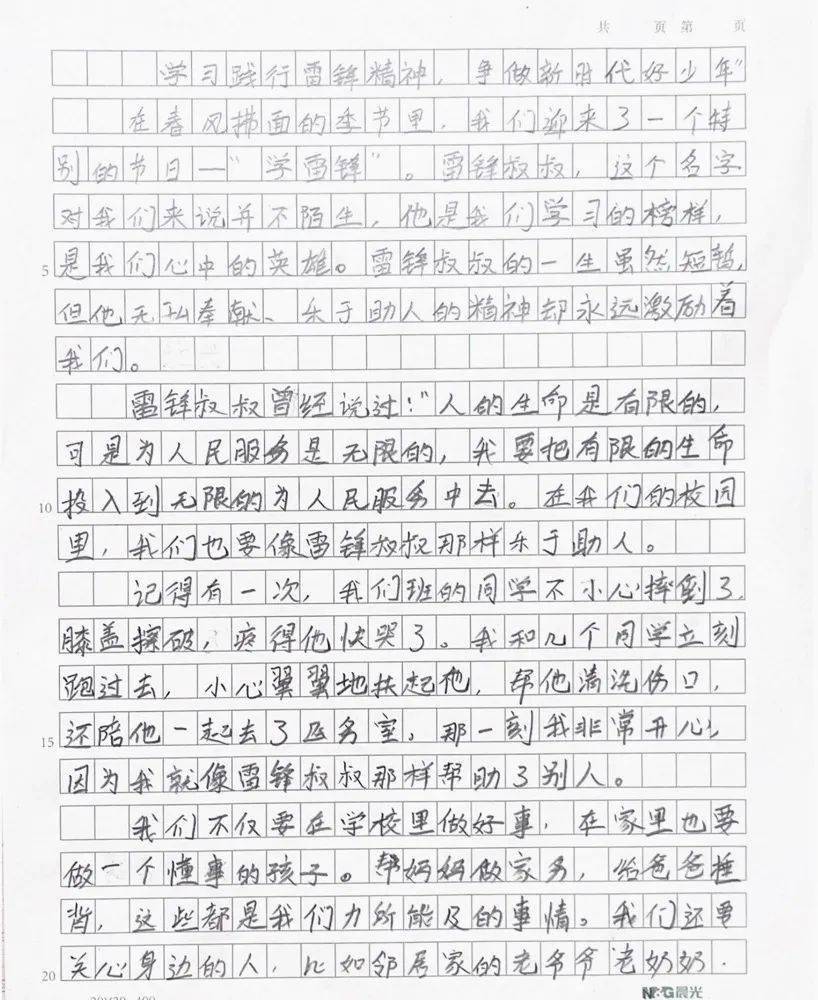 共 页 第 页
学习践行雷锋精神，争做新时代好少年"
在春风拂面的季节里，我们迎来了一个特
别的节日—"学雷锋"。雷锋叔叔，这个名字
对我们来说并不陌生，他是我们学习的榜样，
5 是我们心中的英雄。雷锋叔叔的一生虽然短暂，
但他无私奉献、乐于助人的精神却永远激励着
我们。
雷锋叔叔曾经说过："人的生命是有限的，
可是为人民服务是无限的，我要把有限的生命
10 投入到无限的为人民服务中去。在我们的校园
里，我们也要像雷锋叔叔那样乐于助人。
记得有一次，我们班的同学不小心摔倒了，
膝盖擦破，疼得他快哭了。我和几个同学立刻
跑过去，小心翼翼地扶起他，帮他清洗伤口，
15 还陪他一起去了医务室。那一刻我非常开心，
因为我就像雷锋叔叔那样帮助了别人。
我们不仅要在学校里做好事，在家里也要
做一个懂事的孩子。帮妈妈做家务，给爸爸捶
背，这些都是我们力所能及的事情。我们还要
20 关心身边的人，比如邻居家的老爷爷老奶奶.
20×20=400 M&G晨光